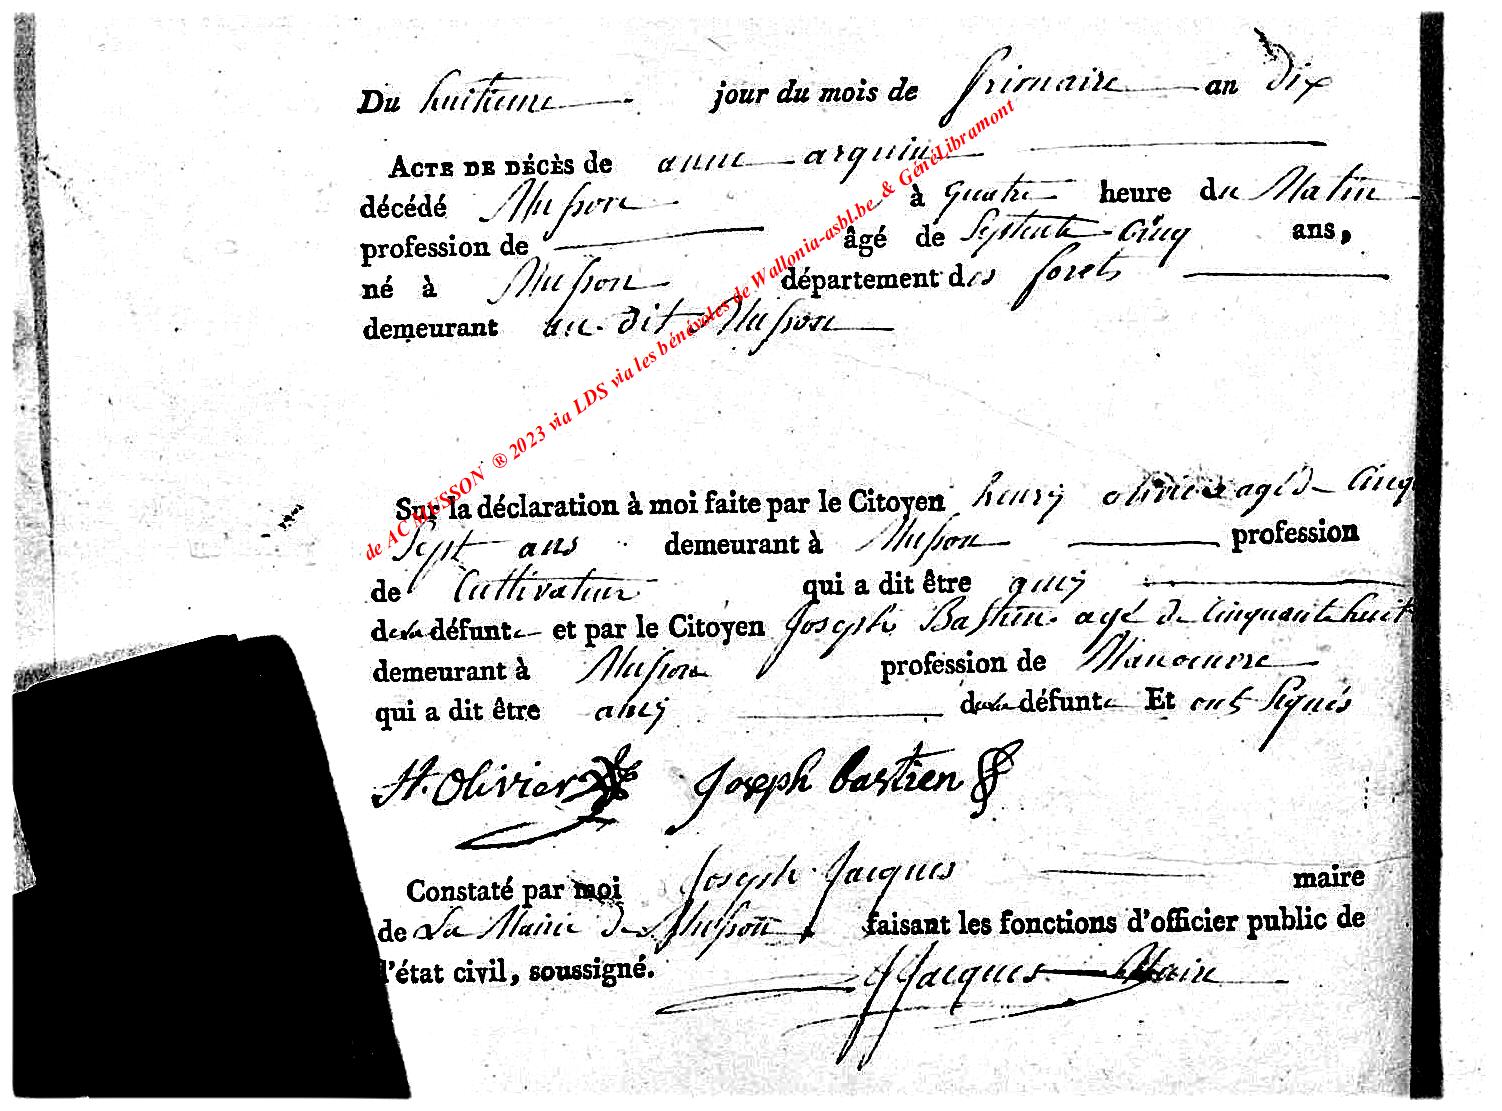 Du huitieme jour du mois de frimaire an dix
ACTE DE DÉCÈS de anne arquin
décédé Musson à quatre heure du Matin
profession de âgé de Septente Cinq ans,
né à Musson département des forets
demeurant au dit Musson
Sur la déclaration à moi faite par le Citoyen henry olivier agé d Cinq
Sept ans demeurant à Musson profession
de Cultivateur qui a dit être amij
de la défunte et par le Citoyen Joseph Bastien agé de Cinquante huit
demeurant à Musson profession de Manoeuvre
qui a dit être amij de la défunte Et ont Signés
H. Olivier Joseph bastien
Constaté par moi Joseph Jacques maire
de La Mairie de Musson faisant les fonctions d'officier public de
l'état civil, soussigné. J Jacques Maire
de AC MUSSON ® 2023 via LDS via les bénévoles de Wallonia-asbl.be & GénéLibramont